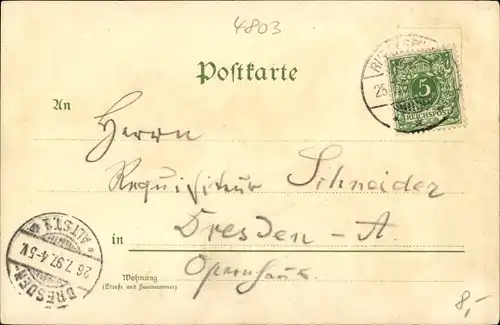 4803
Postkarte
5
REICHSPOST
An
Herrn
Requisiteur Schneider
in Dresden-A
Opernhaus.
Wohnung
(Straße und Hausnummer)
DRESDEN-ALTST.
26.7.97.4-5N.
8,-